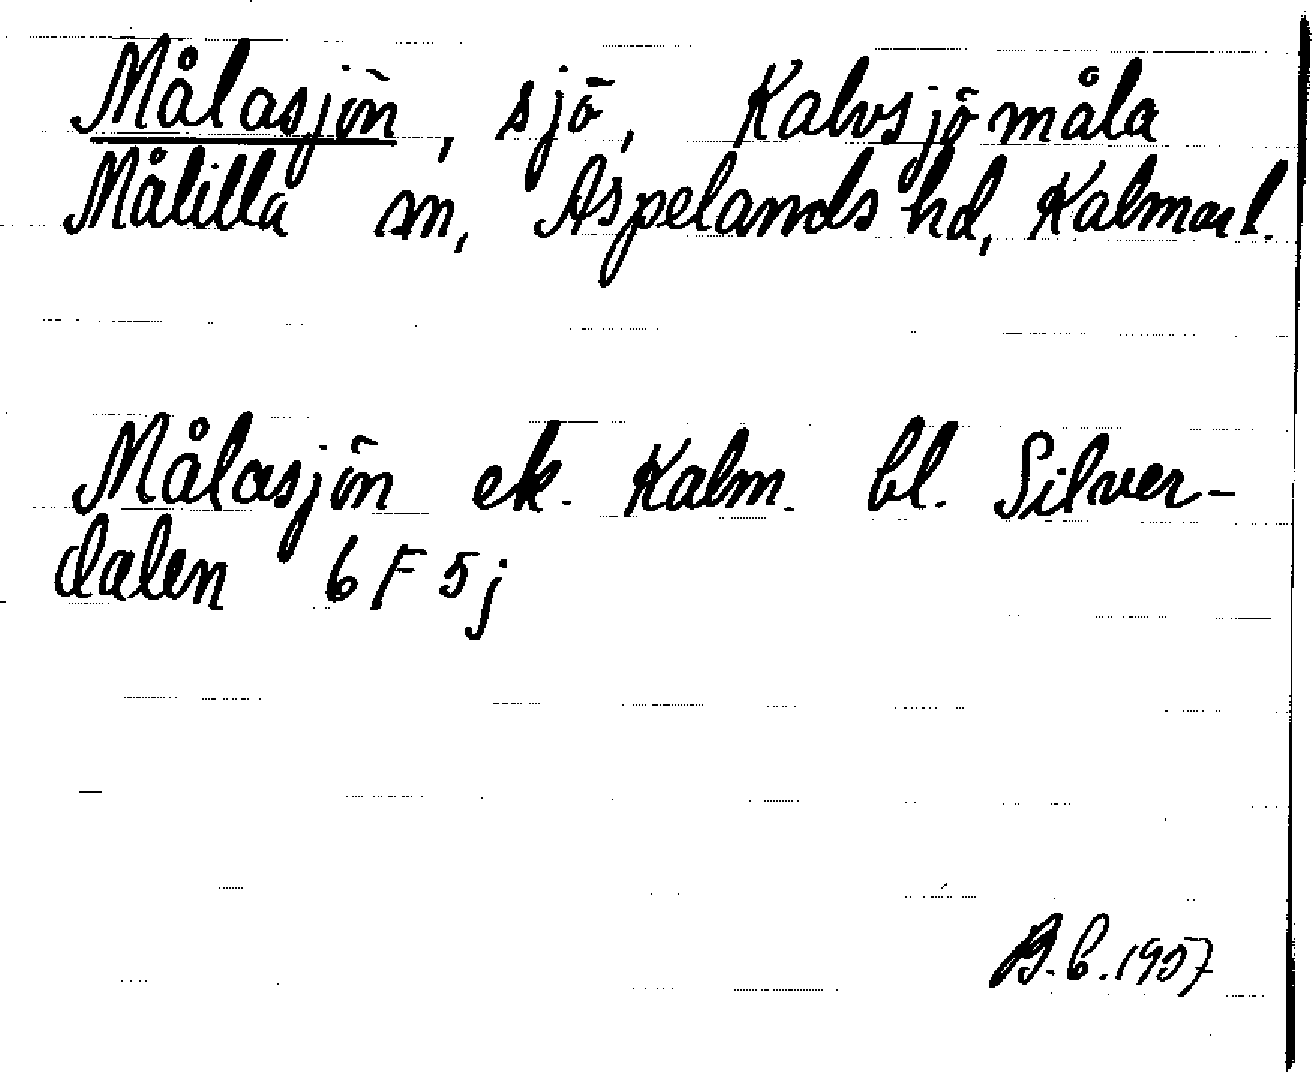 Målasjön, sjö, Kalvsjömåla
Målilla sn, Aspelands hd, Kalmar l.
Målasjön ek. Kalm. bl. Silver-
dalen 6 F 5 j
B.C. 1957